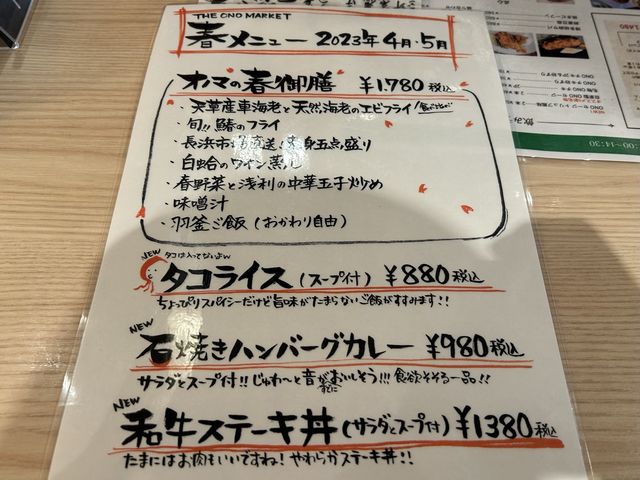 THE ONO MARKET
春メニュー 2023年4月・5月
オノマの春御膳 ¥1,780 税込
・天草産車海老と天然海老のエビフライ 食べ比べ
・旬!! 鰆のフライ
・長浜市場直送!刺身五点盛り
・白蛤のワイン蒸し
・春野菜と浅利の中華玉子炒め
・味噌汁
・羽釜ご飯(おかわり自由)
NEW タコは入ってないよw
タコライス(スープ付) ¥880税込
ちょっぴりスパイシーだけど旨味がたまらないご飯がすすみます!!
NEW
石焼きハンバーグカレー ¥980税込
サラダとスープ付!!じゅわ〜と音がすでにおいしそう!!!食欲そそる一品!!
NEW
和牛ステーキ丼(サラダとスープ付)¥1380税込
たまにはお肉もいいですね!やわらかステーキ丼!!
:00〜14:30